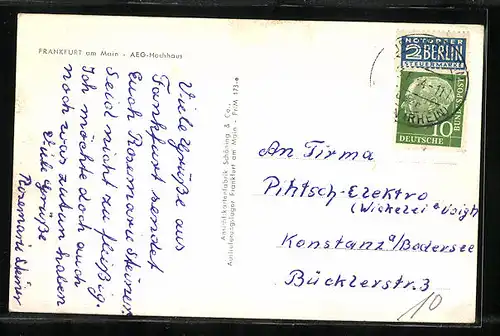 FRANKFURT am Main - AEG-Hochhaus
Viele Grüße aus
Fankfurt sendet
Euch Rosemarie Steiner.
Seid nicht zu fleißig.
Ich möchte doch auch
noch was zutun haben
Viele Grüße
Rosemarie Steiner
Ansichtskartenfabrik Schöning & Co.,
Auslieferungslager Frankfurt am Main - Fr/M 173-e
NOTOPFER
2 BERLIN
STEUERMARKE
10
DEUTSCHE BUNDESPOST
(RHEIN)
An Firma
Pintsch-Elektro
(Wickelei Voigt)
Konstanz a/Bodensee
Bücklerstr. 3
10